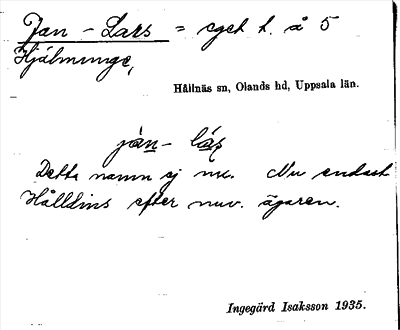 Jan-Lars = eget h. å 5
Hjälmunge,
Hållnäs sn, Olands hd, Uppsala län.
jàn- lás
Detta namn ej nu. Nu endast
Hålldins efter nuv. ägaren.
Ingegärd Isaksson 1935.